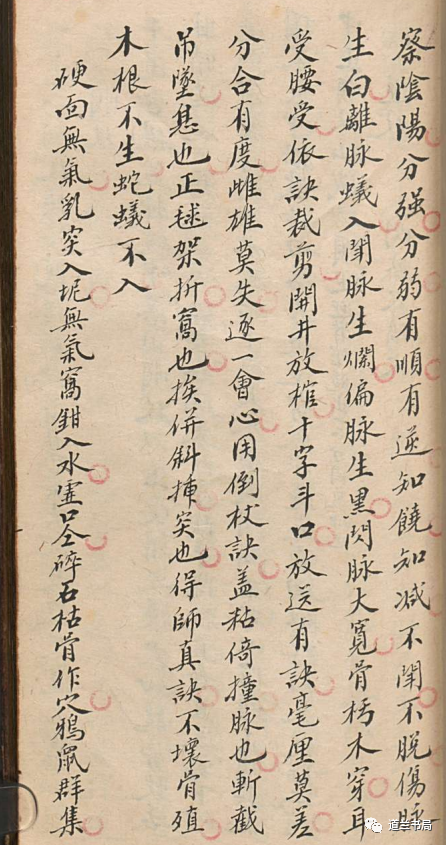 察陰陽分强分弱有順有逆知饒知减不閗不脱傷脉
生白離脉蟻入閗脉生爛偏脉生黑閃脉大寛骨枯木穿耳
受腰受依訣裁剪開井放棺十字斗口放送有訣毫厘莫差
分合有度雌雄莫失逐一會心用倒杖訣盖粘倚撞脉也斬截
吊墜息也正毬架折窩也挨併斜揷突也得師真訣不壞骨殖
木根不生蛇蟻不入
硬面無氣乳突入坭無氣窩鉗入水壺口仝碎石枯骨作穴鴉鼠群集
道莘书局